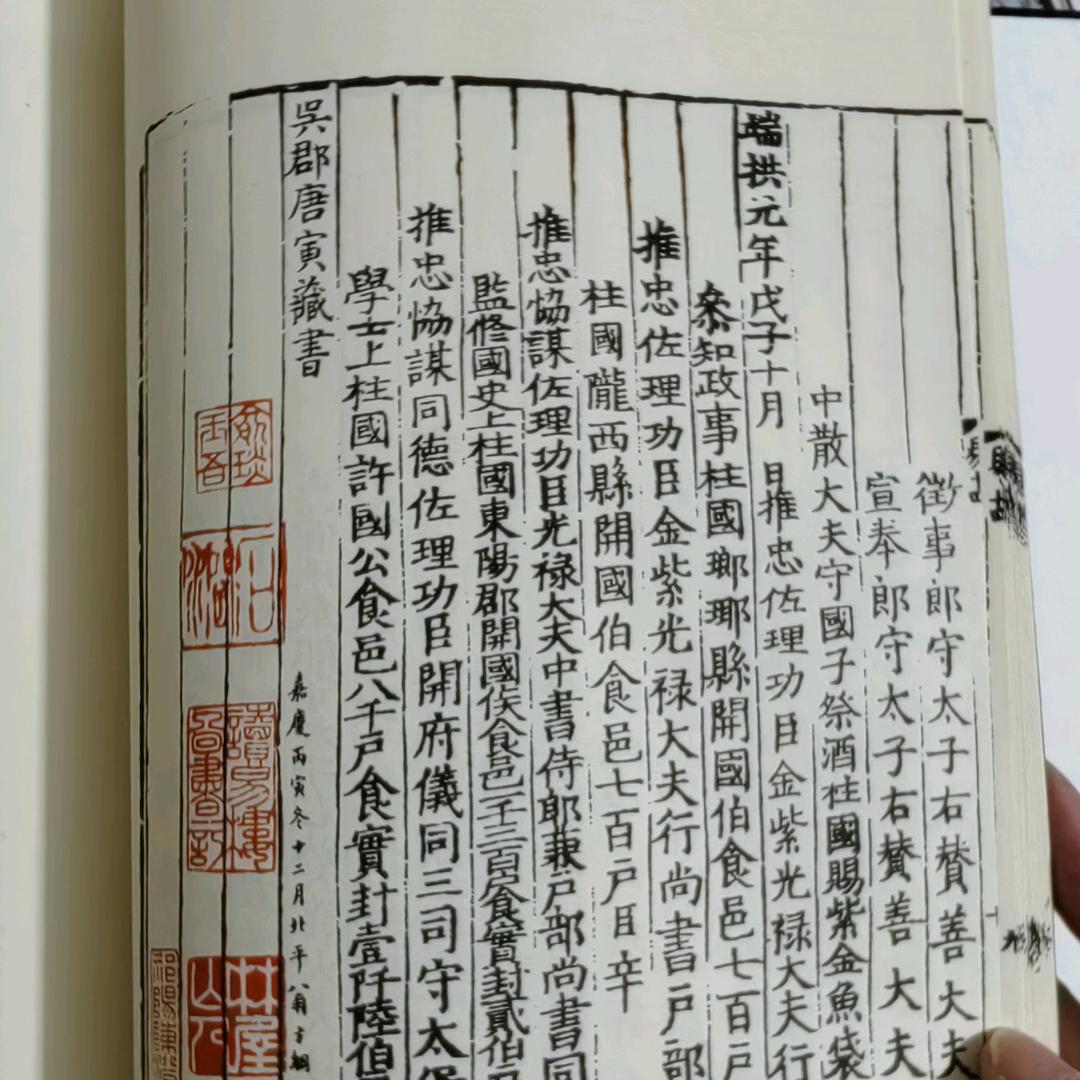 徵事郎守太子右賛善大夫
宣奉郎守太子右賛善大夫
中散大夫守國子祭酒柱國賜紫金魚袋
端拱元年戊子十月 日推忠佐理功臣金紫光禄大夫行
叅知政事柱國瑯瑘縣開國伯食邑七百戸
推忠佐理功臣金紫光禄大夫行尚書戸部
柱國隴西縣開國伯食邑七百戸臣辛
推忠恊謀佐理功臣光禄大夫中書侍郎兼戸部尚書同
監修國史上柱國東陽郡開國侯食邑一千三百戸食實封貳伯
推忠恊謀同德佐理功臣開府儀同三司守太保
學士上柱國許國公食邑八千戸食實封壹阡陸伯
吳郡唐寅藏書
嘉慶丙寅冬十二月北平翁方綱
俞琰玉吾
石澗
讀易樓啚書記
林屋山人